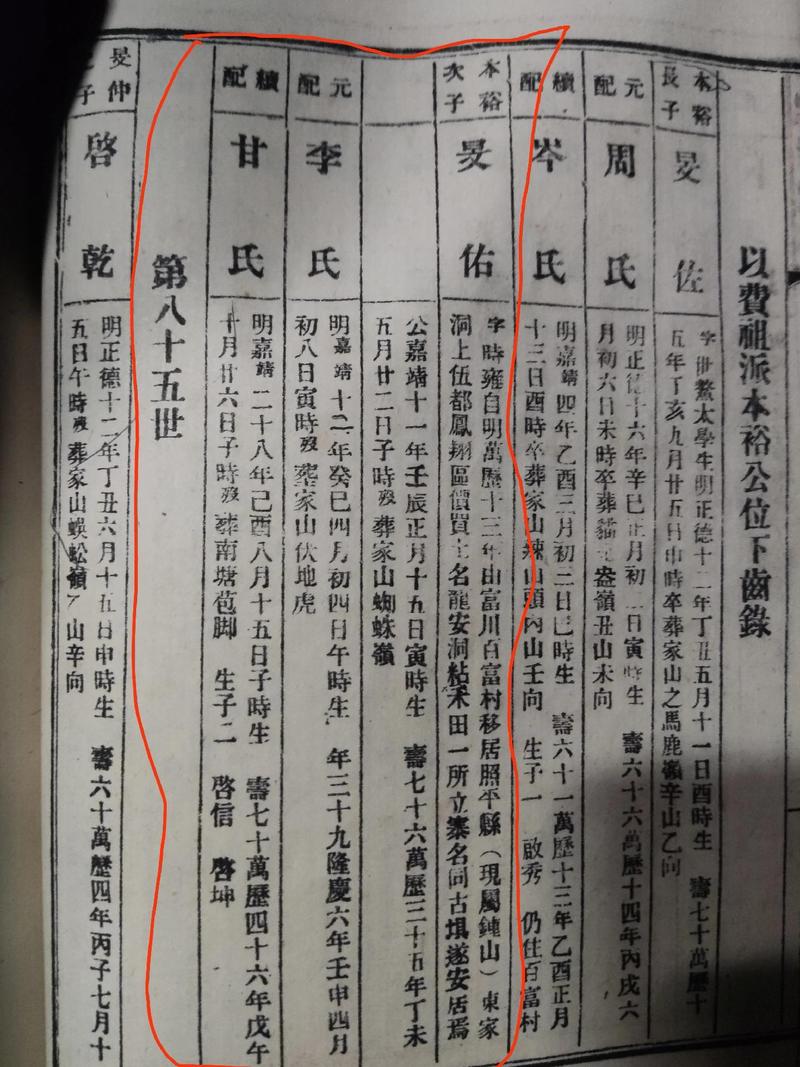 以費祖派本裕公位下齒錄
本裕
長子
旻佐
字世鰲太學生明正德十二年丁丑五月十一日酉時生 壽七十萬歷十
五年丁亥九月廿五日申時卒葬家山之馬鹿嶺辛山乙向
元配
周氏
明正德十六年辛巳正月初二日寅時生 壽六十六萬歷十四年丙戌六
月初六日未時卒葬貓 盜嶺丑山未向
續配
岑氏
明嘉靖四年乙酉三月初三日巳時生 壽六十一萬歷十三年乙酉正月
十三日酉時卒葬家山辣山頭內山壬向 生子一 啟秀 仍住百富村
本裕
次子
旻佑
字時雍自明萬歷十三年由富川百富村移居照平縣（現屬鍾山）東家
洞上伍都鳳翔區價買土名龍安洞粘禾田一所立寨名同古埧遂安居焉
公嘉靖十一年壬辰正月十五日寅時生 壽七十六萬歷三十五年丁未
五月廿二日子時歿葬家山蜘蛛嶺
元配
李氏
明嘉靖十二年癸巳四月初四日午時生 年三十九隆慶六年壬申四月
初八日寅時歿葬家山伏地虎
續配
甘氏
明嘉靖二十八年己酉八月十五日子時生 壽七十萬歷四十六年戊午
十月廿六日子時歿葬南塘苞脚 生子二 啓信 啓坤
第八十五世
旻仲
子
啓乾
明正德十二年丁丑六月十五日申時生 壽六十萬歷四年丙子七月十
五日午時歿葬家山蜈蚣嶺 山辛向